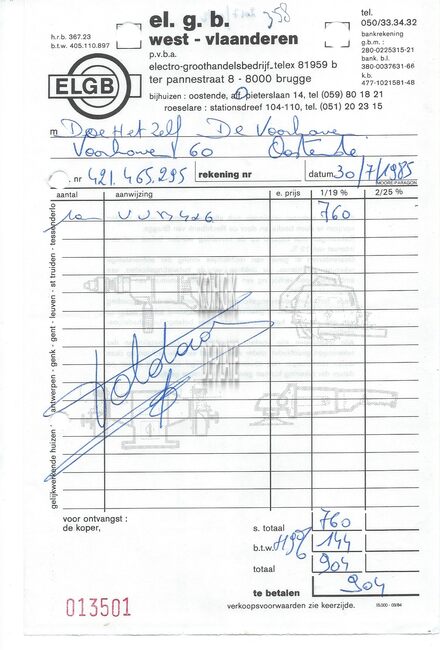 el. g. b.
358
west - vlaanderen
p.v.b.a.
electro-groothandelsbedrijf-telex 81959 b
ter pannestraat 8 - 8000 brugge
bijhuizen : oostende, aff.pieterslaan 14, tel (059) 80 18 21
roeselare : stationsdreef 104-110, tel. (051) 20 23 15
h.r.b. 367.23
b.t.w. 405.110.897
ELGB
tel.
050/33.34.32
bankrekening
g.b.m. :
280-0225315-21
bank. b.l.
380-0037631-66
k.b.
477-1021581-48
m Doe Het Zelf De Voorhave
Voorhave 60 Oostende
nr 421.465.295 rekening nr datum 30/7/1985
MOORE-PARAGON
aantal aanwijzing e. prijs 1/19 % 2/25 %
760
Voldaan
gelijkwerkende huizen : antwerpen - genk - gent - leuven - st truiden - tessenderlo
voor ontvangst :
de koper,
s. totaal 760
b.t.w. 19% 144
totaal 904
te betalen 904
013501
verkoopsvoorwaarden zie keerzijde.